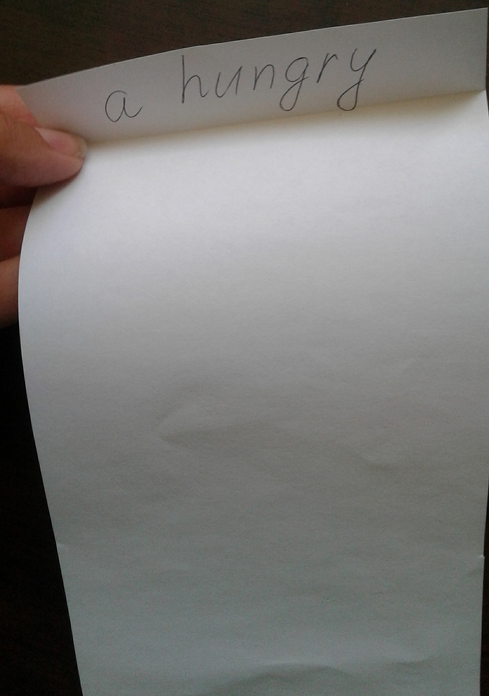 a hungry